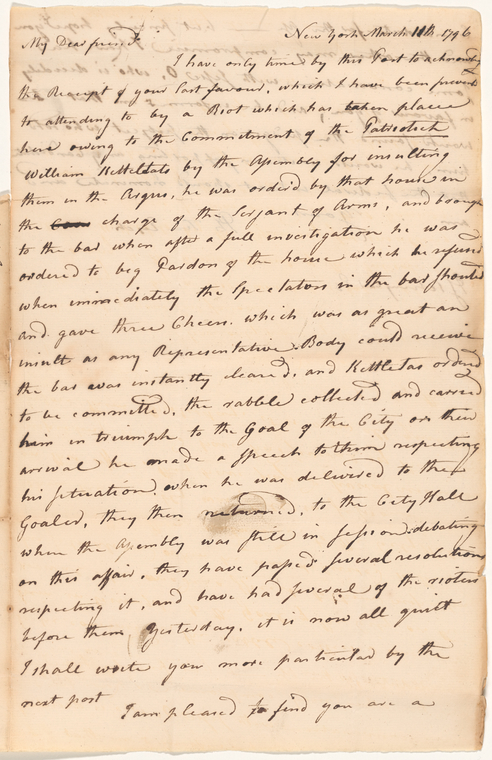 New York March 11th 1796
My Dear friend
I have only time by this Post to acknowledge
the Receipt of your last favour, which I have been prevented
to attending to by a Riot which has taken place
here owing to the Commitment of the Patriotick
William Ketteltas by the Assembly for insulting
them in the Argus, he was order'd by that house in
the charge of the Serjant of Arms, and brough
to the bar when after a full investigation he was
ordered to beg Pardon of the house which he refused
when immediately the Spectators in the bar shouted
and gave three Cheers. which was as great an
insult as any Representative Body could receive
the bar was instantly cleared, and Kettletas ordered
to be committed, the rabble collected and carried
him in triumph to the Goal of the City on their
arrival he made a speech to them respecting
his situation. when he was delivered to the
Goaler, they then returned, to the City Hall
when the Assembly was still in session debating
on this affair, they have passed several resolutions
respecting it, and have had several of the rioters
before them Yesterday. it is now all quiet
I shall write you more particular by the
next post
I am pleased to find you are a